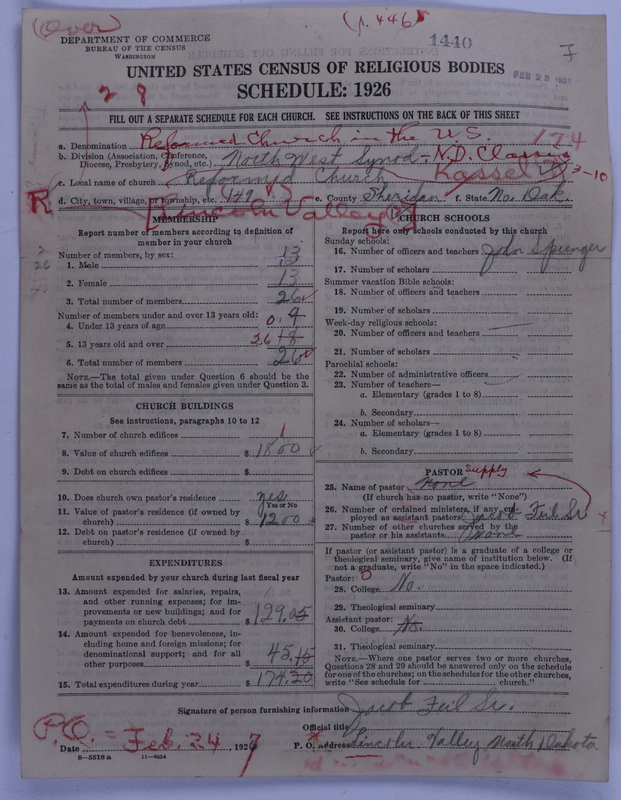 (Over)
(p. 446)
1440
DEPARTMENT OF COMMERCE
BUREAU OF THE CENSUS
WASHINGTON
UNITED STATES CENSUS OF RELIGIOUS BODIES
SCHEDULE: 1926
FILL OUT A SEPARATE SCHEDULE FOR EACH CHURCH. SEE INSTRUCTIONS ON THE BACK OF THIS SHEET
a. Denomination Reformed Church in the U.S. 174
b. Division (Association, Conference, Diocese, Presbytery, Synod, etc.) North West Synod - N.D. Classis
c. Local name of church Reformed Church Kassel 3-10
d. City, town, village, or township, etc. 149 e. County Sheridan f. State No. Dak.
R [Lincoln Valley]
MEMBERSHIP
Report number of members according to definition of
member in your church
Number of members, by sex:
1. Male 13
2. Female 13
3. Total number of members 26
Number of members under and over 13 years old:
4. Under 13 years of age 0 4
5. 13 years old and over 26 18
6. Total number of members 26
NOTE.—The total given under Question 6 should be the
same as the total of males and females given under Question 3.
CHURCH BUILDINGS
See instructions, paragraphs 10 to 12
7. Number of church edifices 1
8. Value of church edifices $ 1800
9. Debt on church edifices $
10. Does church own pastor's residence yes
Yes or No
11. Value of pastor's residence (if owned by
church) $ 1200
12. Debt on pastor's residence (if owned by
church) $
EXPENDITURES
Amount expended by your church during last fiscal year
13. Amount expended for salaries, repairs,
and other running expenses; for im-
provements or new buildings; and for
payments on church debt $ 129.05
14. Amount expended for benevolences, in-
cluding home and foreign missions; for
denominational support; and for all
other purposes $ 45.15
15. Total expenditures during year $ 174.20
CHURCH SCHOOLS
Report here only schools conducted by this church
Sunday schools:
16. Number of officers and teachers John Springer
17. Number of scholars
Summer vacation Bible schools:
18. Number of officers and teachers
19. Number of scholars
Week-day religious schools:
20. Number of officers and teachers
21. Number of scholars
Parochial schools:
22. Number of administrative officers
23. Number of teachers—
a. Elementary (grades 1 to 8)
b. Secondary
24. Number of scholars—
a. Elementary (grades 1 to 8)
b. Secondary
PASTOR Supply
25. Name of pastor None
(If church has no pastor, write "None")
26. Number of ordained ministers, if any, em-
ployed as assistant pastors Jacob Feil Sr
27. Number of other churches served by the
pastor or his assistants None
If pastor (or assistant pastor) is a graduate of a college or
theological seminary, give name of institution below. (If
not a graduate, write "No" in the space indicated.)
Pastor:
28. College No.
29. Theological seminary
Assistant pastor:
30. College No.
31. Theological seminary
NOTE.—Where one pastor serves two or more churches,
Questions 28 and 29 should be answered only on the schedule
for one of the churches; on the schedules for the other churches,
write "See schedule for church."
Signature of person furnishing information Jacob Feil Sr.
Official title
P.O. =
Date Feb. 24, 1927
P. O. Address Lincoln Valley North Dakota
8—5518a 11—9034